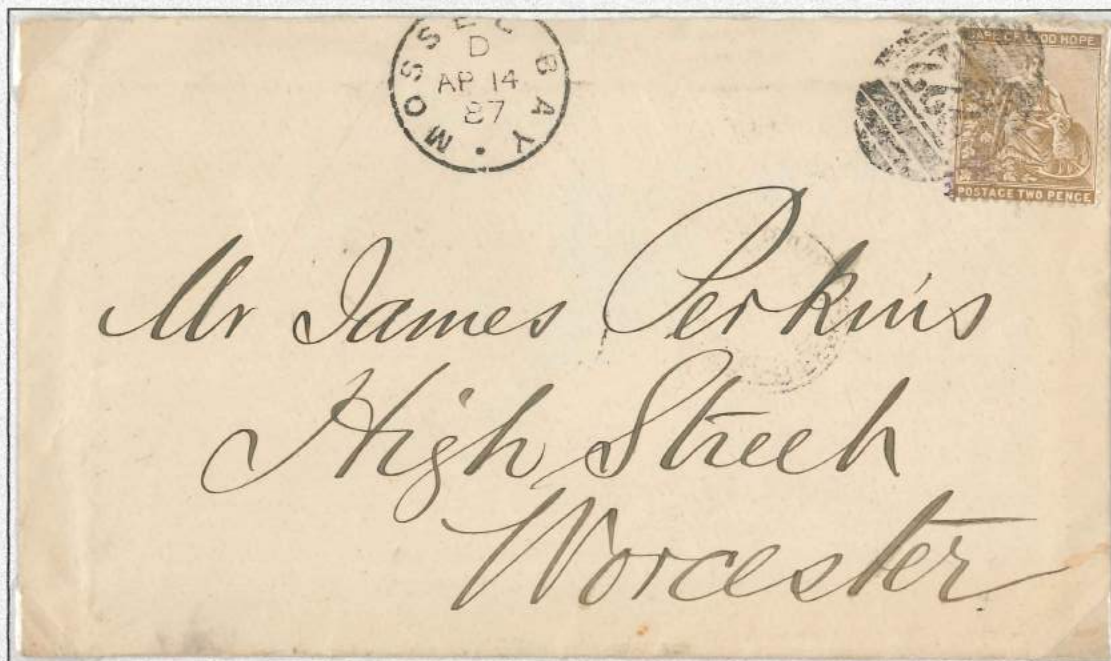 MOSSEL BAY
D
AP 14
87
CAPE OF GOOD HOPE
POSTAGE TWO PENCE
Mr James Perkins
High Street
Worcester